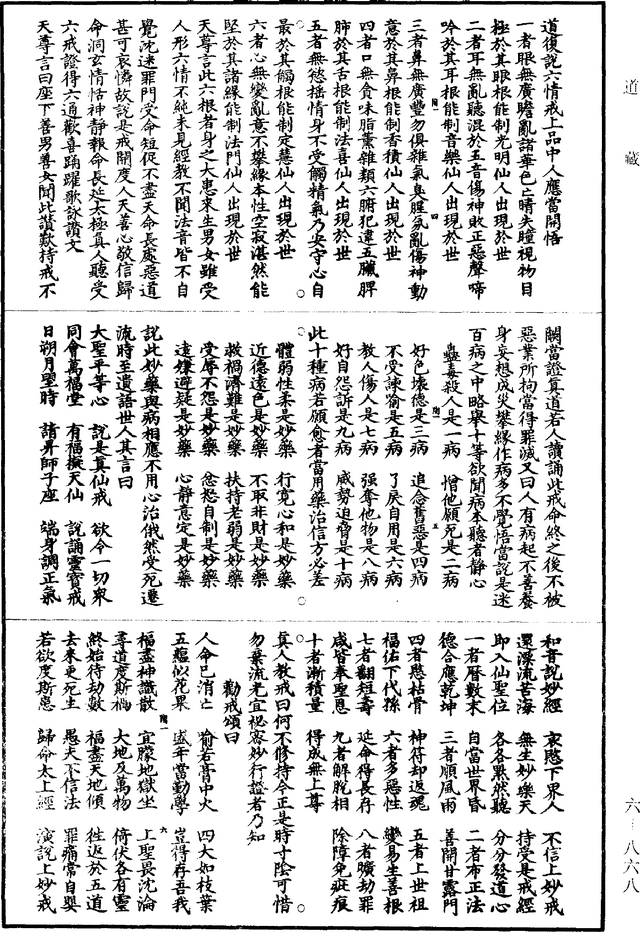 道藏
六—八六八
道復說六情戒上品中人應當開悟
一者眼無廣瞻亂諸華色亡睛失瞳視物目
極於其眼根能制光明仙人出現於世
二者耳無亂聽混於五音傷神敗正惡聲啼
吟於其耳根能制音樂仙人出現於世
三者鼻無廣豐勿俱雜氣臭腥氛亂傷神動
意於其鼻根能制香積仙人出現於世
四者口無貪味脂薰雜類六腑犯違五臟脾
肺於其舌根能制法喜仙人出現於世
五者無慾搖情身不受觸精氣乃安守心自
最於其觸根能制定慧仙人出現於世
六者心無變亂意不攀緣本性空寂湛然能
堅於其諸緣能制法門仙人出現於世
天尊言此六根者身之大患來生男女雖受
人形六情不純未見經教不聞法音皆不自
覺沈迷罪門受命短促不盡天命長處惡道
甚可哀憐故說是戒開度人天善心敬信歸
命洞玄情恬神靜報命長延太極真人聽受
六戒證得六通歡喜踊躍歌詠讚文
天尊言曰座下善男善女聞此讚歎持戒不
闕當證真道若人讀誦此戒命終之後不被
惡業所拘當得罪滅又曰人有病起不善養
身妄想成災攀緣作病多不覺悟當說是迷
百病之中略舉十等欲聞病本聽者靜心
蠱毒殺人是一病　憎他願死是二病
好色壞德是三病　追念舊惡是四病
不受諫喻是五病　了戾自用是六病
教人傷人是七病　强奪他物是八病
好自怨訴是九病　威勢迫脅是十病
此十種病若願愈者當用藥治信方必差
體弱性柔是妙藥　行寛心和是妙藥
近德遠色是妙藥　不取非財是妙藥
救禍濟難是妙藥　扶持老弱是妙藥
受辱不怨是妙藥　忿怒自制是妙藥
遠嫌避疑是妙藥　心靜意定是妙藥
說此妙藥與病相應不用心治俄然受死遷
流時至遺語世人其言曰
大聖平等心　說是真仙戒　欲令一切衆
同會萬福堂　有福擬天仙　說誦靈寶戒
日朔月聖時　請昇師子座　端身調正氣
和音說妙經　哀愍下界人　不信上妙戒
還溺流苦海　無生妙樂天　持受是戒經
即入仙聖位　各各默然聽　分分發道心
一者曆數末　自當世界昏　二者布正法
德合應乾坤　三者順風雨　善開甘露門
四者愍枯骨　神符却返魂　五者上世祖
福佑下代孫　六者多惡性　變易生善根
七者翻短壽　延命得長存　八者曠劫罪
咸皆奉聖恩　九者解脫相　除障免疵痕
十者漸積量　得成無上尊
真人教戒曰何不修持今正是時寸隂可惜
勿棄流光宜祕密妙行證者乃知
勸戒頌曰
人命已消亡　喻若膏中火　四大如枝葉
五蘊似花果　盛年當勤學　豈得存吾我
福盡神識散　宜朦地獄坐　上聖畏沈淪
盡道度斯禍　大地及萬物　倚伏各有靈
終始待劫數　福盡天地傾　往返於五道
去來更死生　愚夫不信法　罪痛常自嬰
若欲度斯患　歸命太上經　演說上妙戒